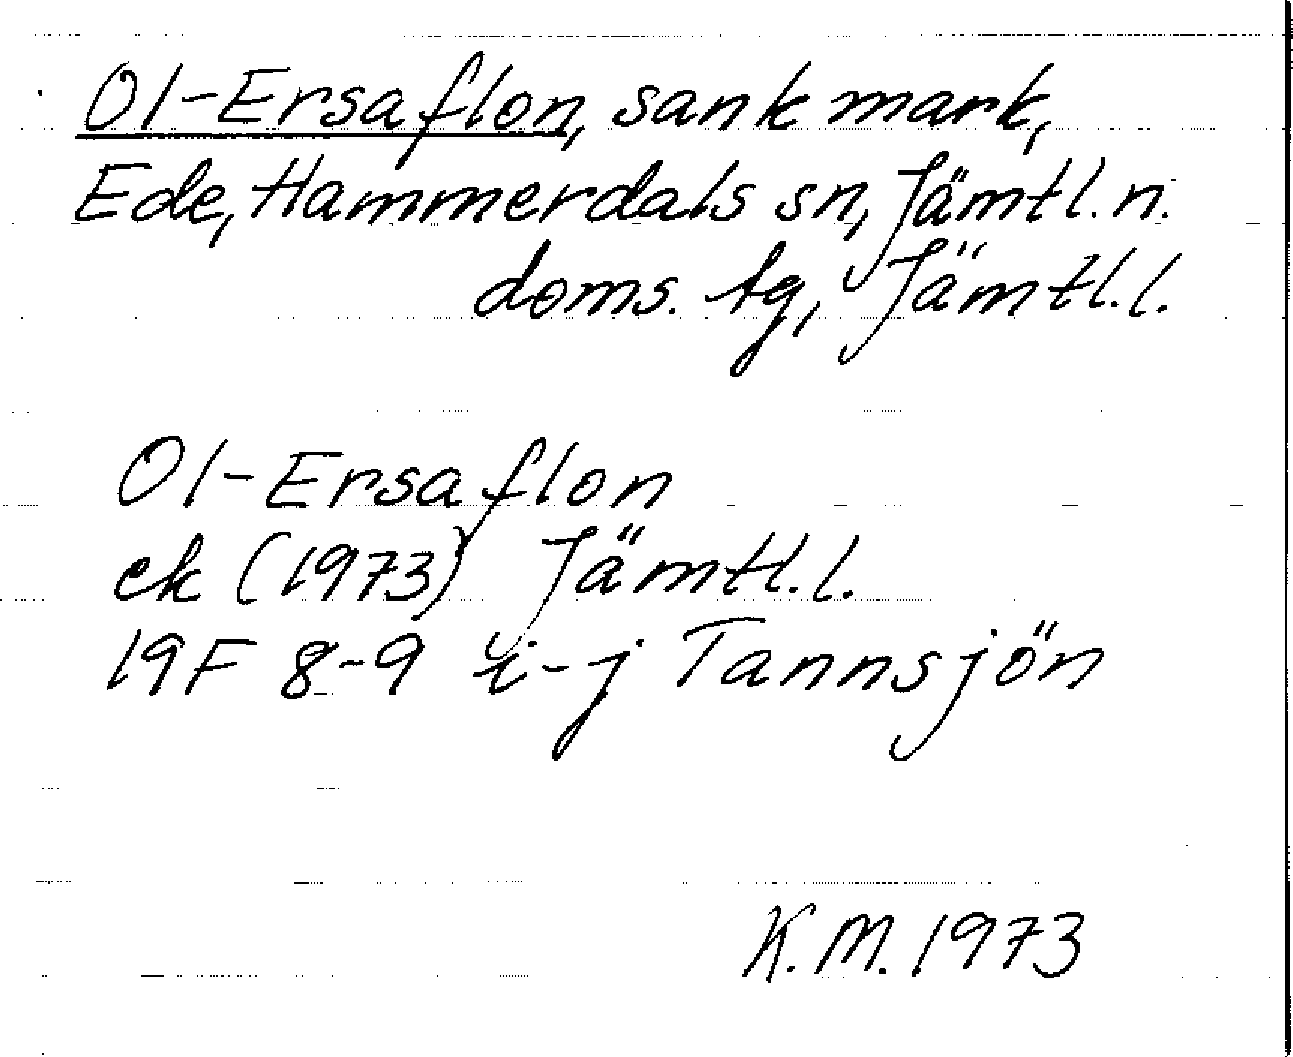 Ol-Ersaflon, sank mark,
Ede, Hammerdals sn, Jämtl. n.
doms. tg, Jämtl. l.
Ol-Ersaflon
ek (1973) Jämtl. l.
19F 8-9 i-j Tannsjön
K.M. 1973